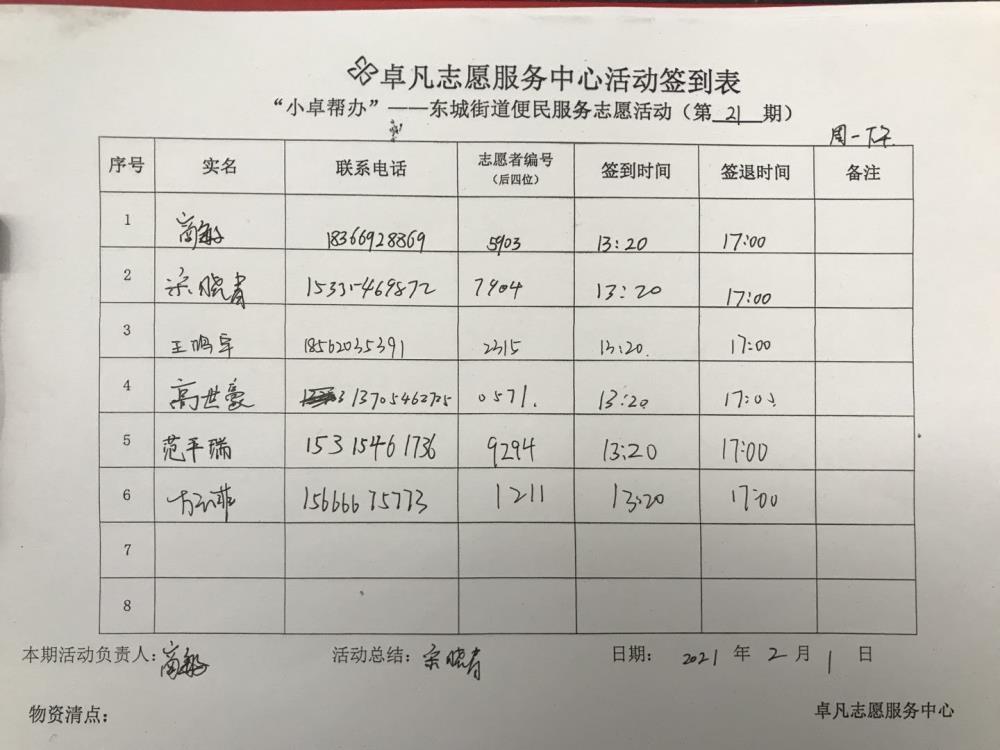 卓凡志愿服务中心活动签到表
“小卓帮办”——东城街道便民服务志愿活动（第 21 期）
周一下午
序号 实名 联系电话 志愿者编号（后四位） 签到时间 签退时间 备注
1 18366928869 5903 13:20 17:00
2 宋晓青 15335469872 7904 13:20 17:00
3 王鸣宇 18562035391 2315 13:20. 17:00
4 高世豪 13705462725 0571. 13:20 17:00
5 范平瑞 15315461736 9294 13:20 17:00
6 15666675773 1211 13:20 17:00
7
8
本期活动负责人： 活动总结：宋晓青 日期： 2021 年 2 月 1 日
物资清点： 卓凡志愿服务中心